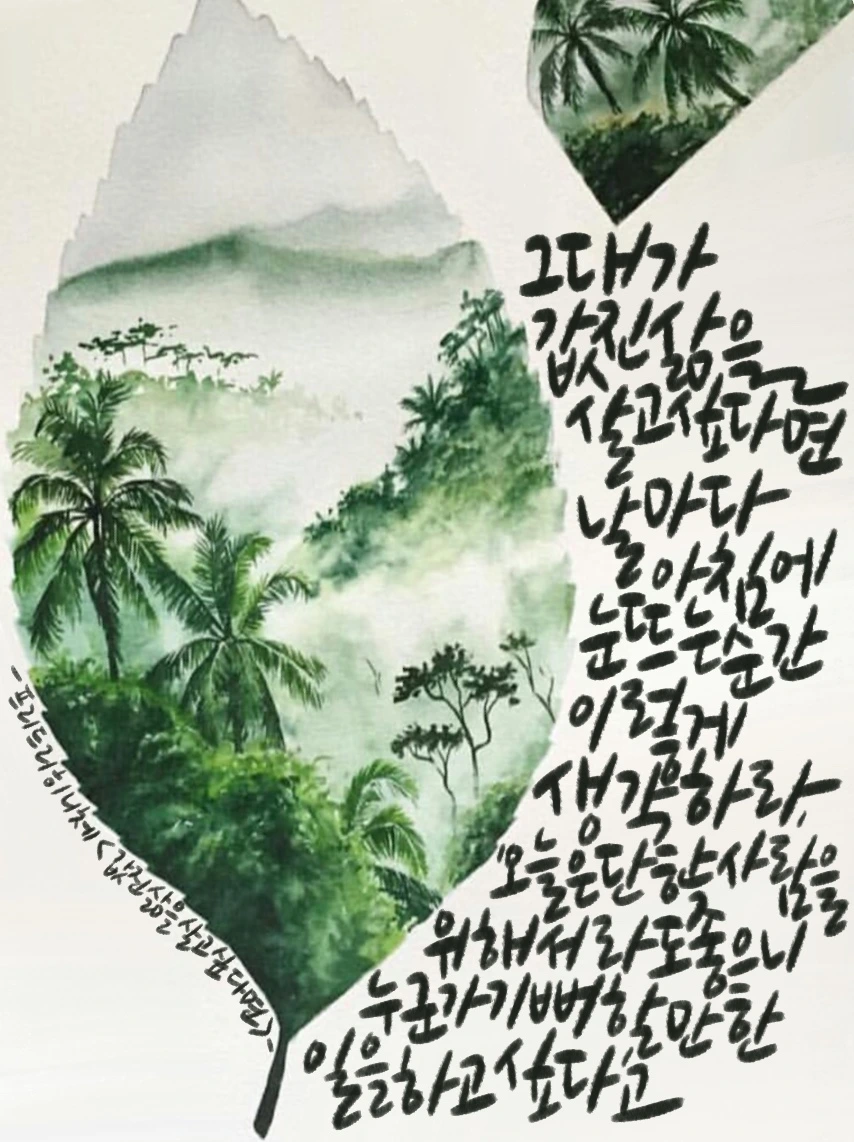 그대가
값진 삶을
살고 싶다면
날마다
아침에
눈뜨는 순간
이렇게
생각하라,
'오늘은 단 한 사람을
위해서라도 좋으니
누군가 기뻐할 만한
일을 하고 싶다'고
-프리드리히 니체 <값진 삶을 살고 싶다면>-